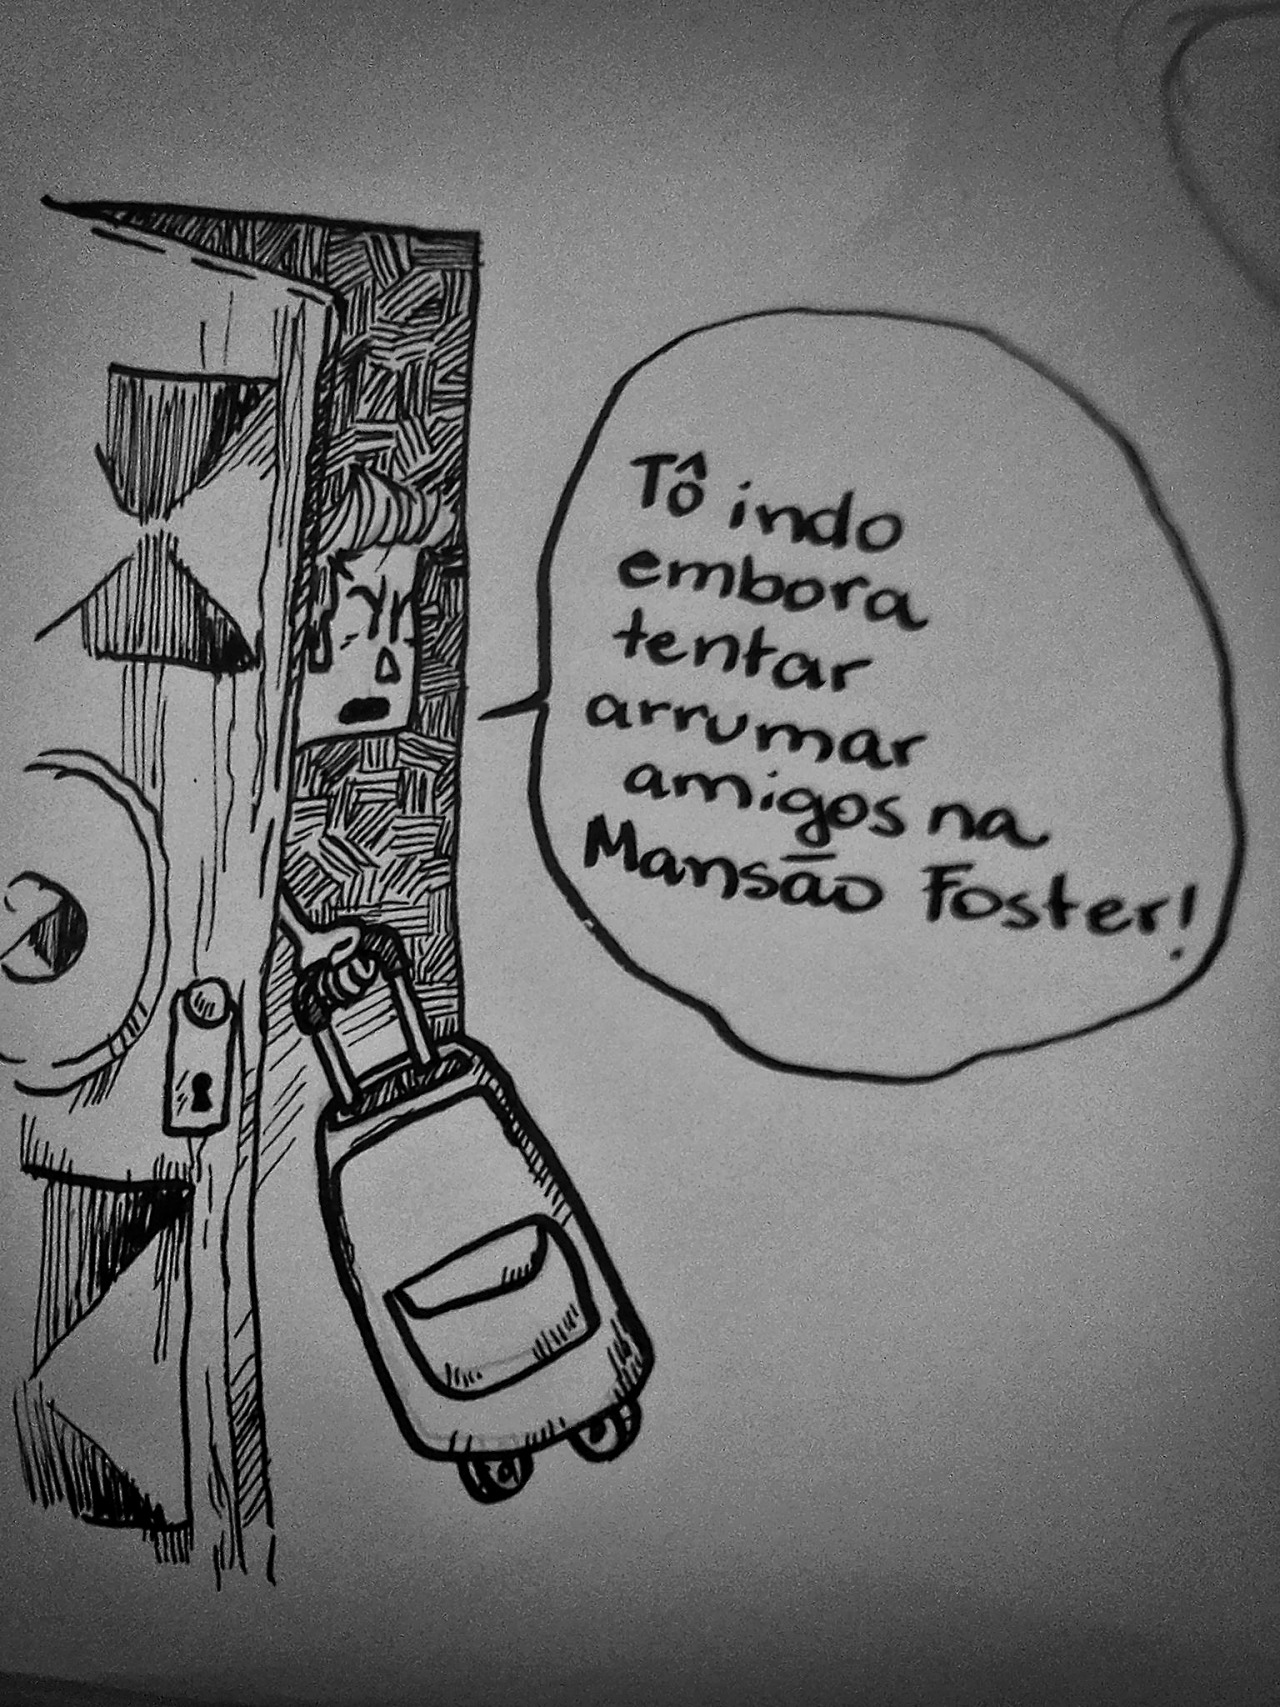 Tô indo
embora
tentar
arrumar
amigos na
Mansão Foster!